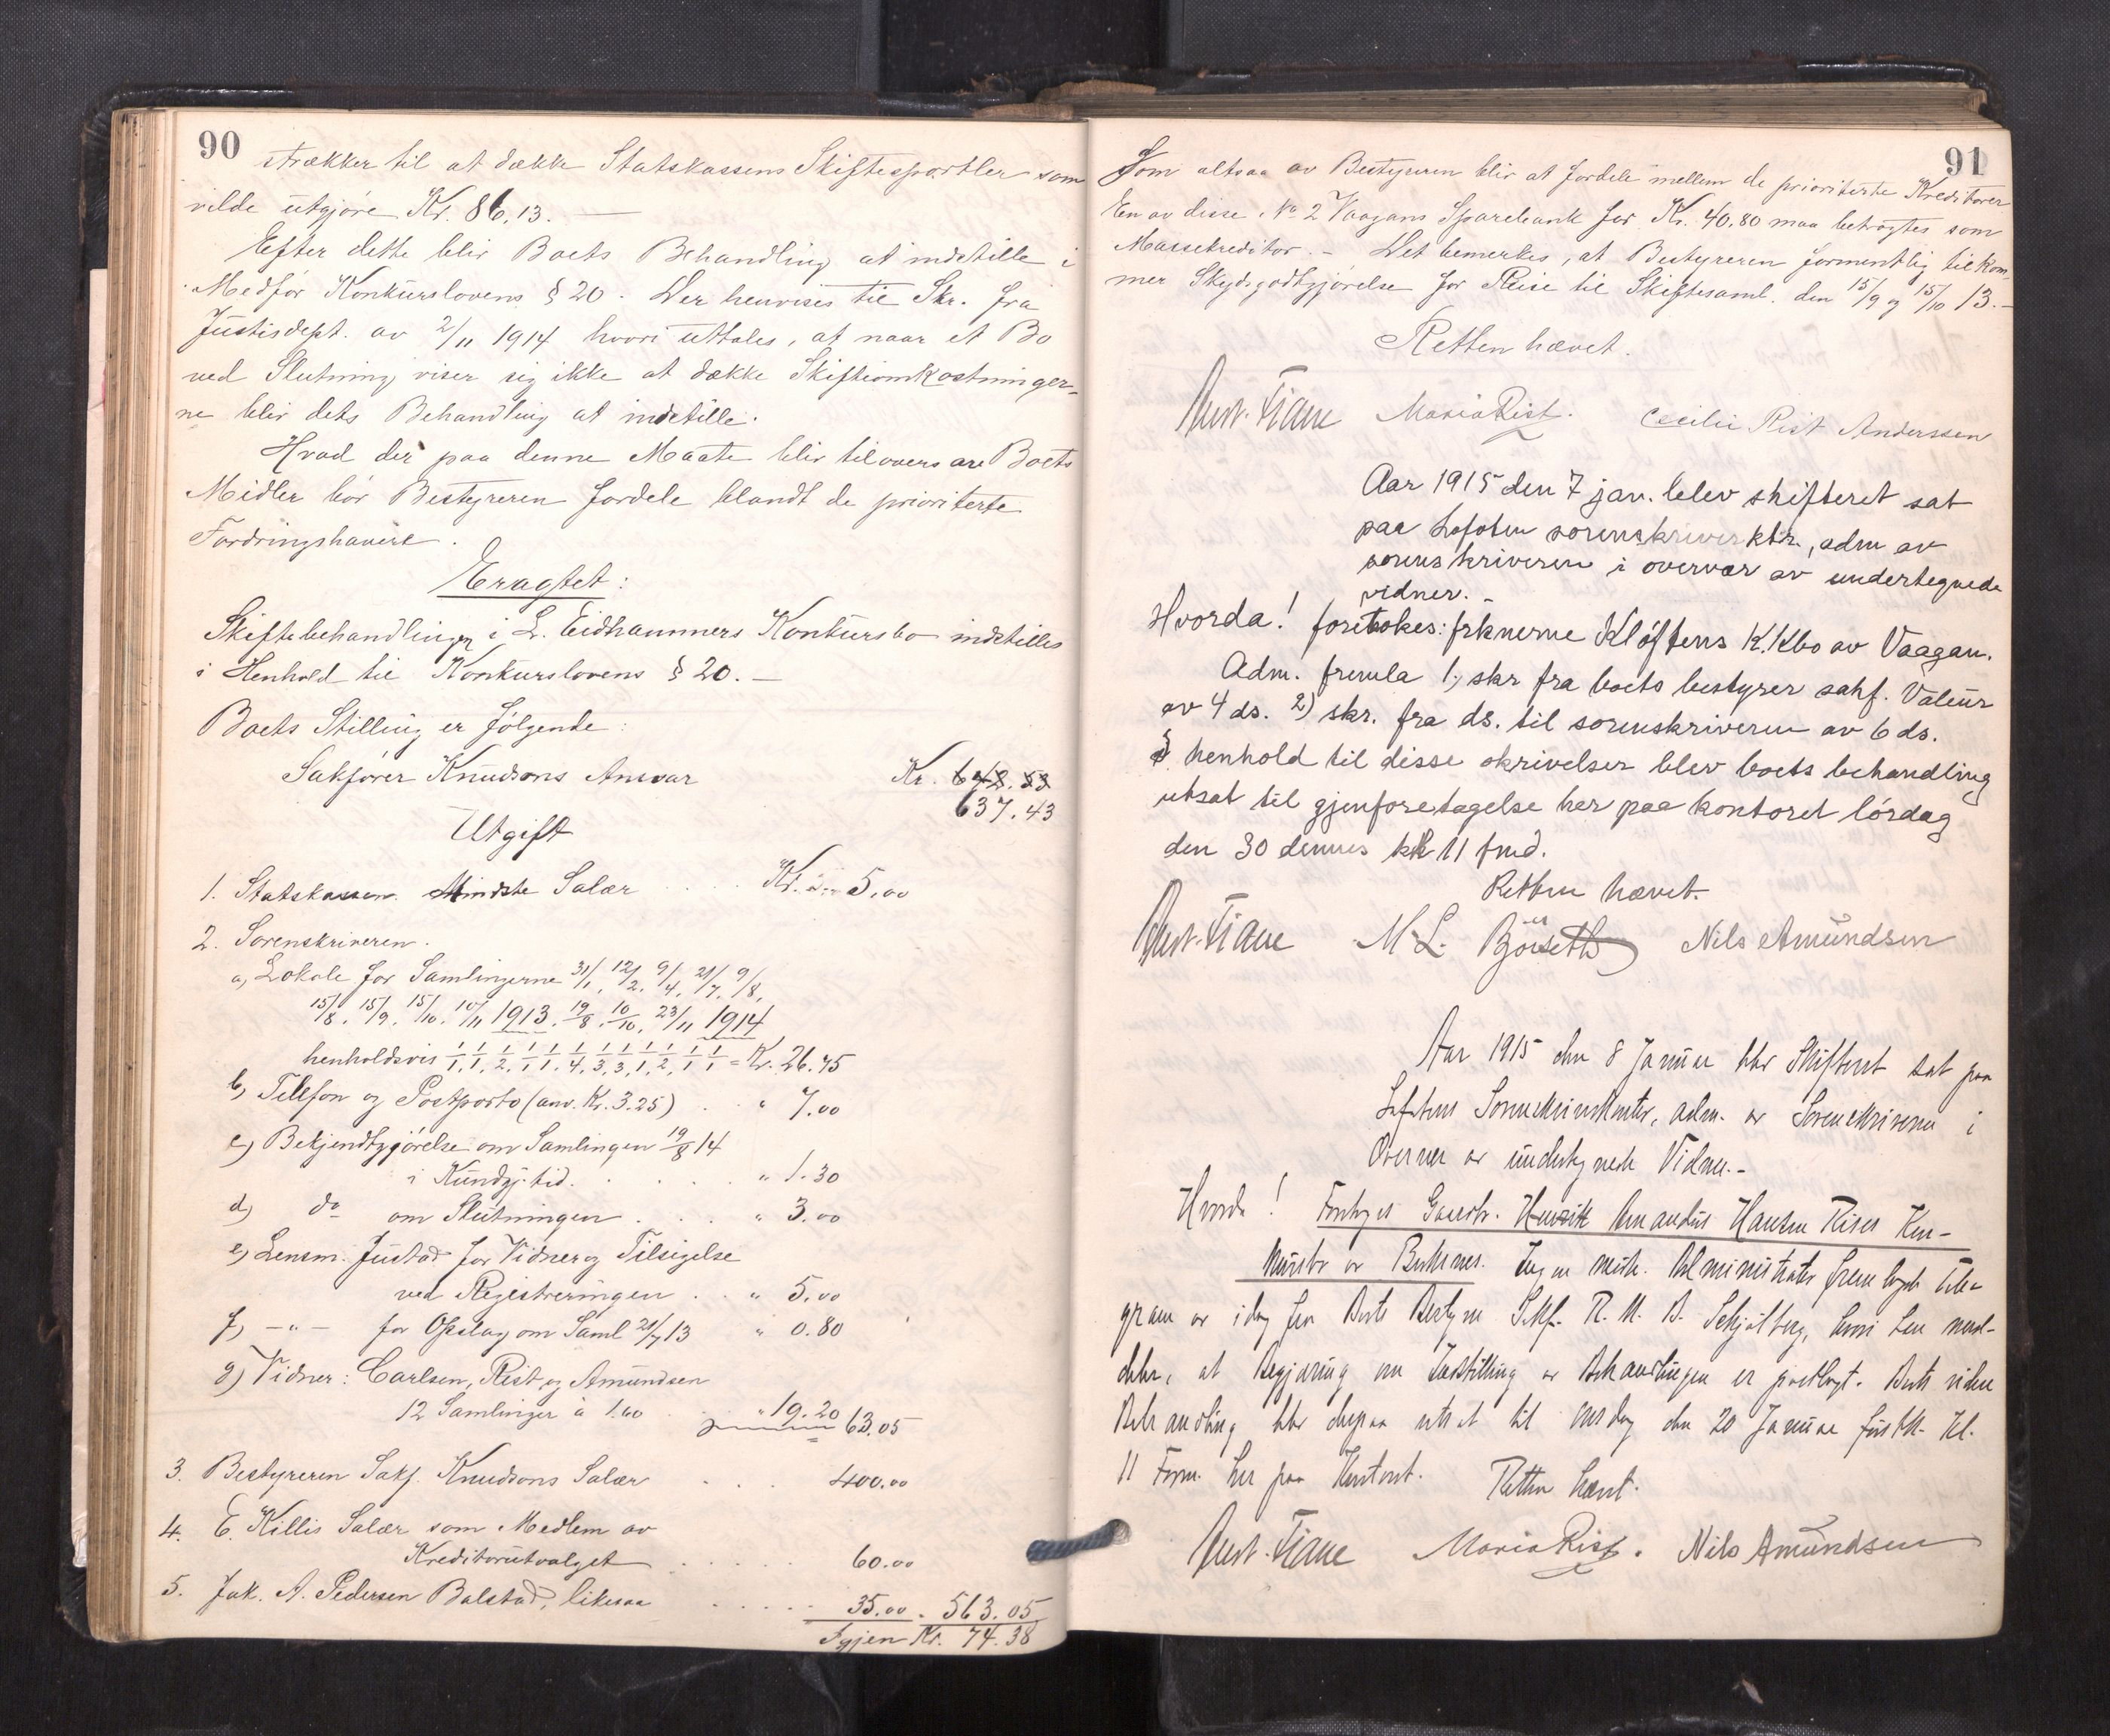 90
strækker til at dække Statskassens Skiftesportler som
vilde utgjøre Kr. 86,13.
Efter dette blir Boets Behandling at indstille i
Medfør Konkurslovens § 20. Der henvises til Skr. fra
Justisdept. av 2/11 1914 hvori uttales, at naar et Bo
ved Slutning viser sig ikke at dække Skifteomkostninger-
ne blir dets Behandling at indstille.
Hvad der paa denne Maate blir tilovers av Boets
Midler bør Bestyreren fordele blandt de prioriterte
Fordringshavere.
Eragtet:
Skiftebehandlingen i L. Eidhammers Konkursbo indstilles
i Henhold til Konkurslovens § 20.
Boets Stilling er følgende:
Sakfører Knudsons Ansvar Kr. 642.53
637.43
Utgift
1. Statskassen. Mindste Salær Kr. 5.00
2. Sorenskriveren.
a, Lokale for Samlingerne 31/1, 12/2, 9/4, 21/7, 9/8,
15/8, 15/9, 15/10, 10/11 1913, 19/8, 10/10, 23/11 1914
henholdsvis 1/1, 1/1, 1/2, 1/1, 1/1, 1/4, 1/3, 1/3, 1/1, 1/2, 1/1, 1/1 = Kr. 26.75
b, Telefon og Postporto (anv. Kr. 3.25) " 7.00
c, Bekjendtgjørelse om Samlingen 19/8 14
i Kundgj. tid. " 1.30
d, do om Slutningen " 3.00
e, Lensm. Justad for Vidner og Tilsigelse
ved Registreringen " 5.00
f, -"- for Opslag om Saml 21/7 13 " 0.80
g) Vidner: Carlsen, Rist og Amundsen
12 Samlinger à 1.60 " 19.20 63.05
3. Bestyreren Sakf. Knudsons Salær 400.00
4. E. Killis Salær som Medlem av
Kreditorutvalget 60.00
5. Jak. A. Pedersen Balstad, likesaa 35.00 . 563.05
Igjen Kr. 74.38
91
Som altsaa av Bestyreren blir at fordele mellem de prioriterte Kreditorer
En av disse, No 2 Vaagans Sparebank for Kr. 40.80 maa betragtes som
Massekreditor. - Det bemerkes, at Bestyreren formentlig tilkom-
mer Skydsgodtgjørelse for Reise til Skiftesaml. den 15/9 og 15/10 13.-
Retten hævet.
Maria Rist. Cecilie Rist Anderssen
Aar 1915 den 7 jan. blev skifteret sat
paa Lofoten sorenskriverktr., adm av
sorenskriveren i overvær av undertegnede
vidner. -
Hvorda! foretokes: frknerne Kløftens K.Kbo av Vaagan.
Adm. fremla 1, skr fra boets bestyrer sakf. Valeur
av 4 ds. 2) skr. fra ds. til sorenskriveren av 6 ds.
I henhold til disse skrivelser blev boets behandling
utsat til gjenforetagelse her paa kontoret lørdag
den 30 dennes kl 11 fmd.
Retten hævet.
M L. Bøiseth Nils Amundsen
Aar 1915 den 8 Januar blev Skifteret sat paa
Lofotens Sorenskriverkontor, adm. av Sorenskriveren i
Overvær av undertegnede Vidner.-
Hvorda! Foretoges Gaardbr. Henrik Amandus Hansen Rises Kon-
kursbo av Buksnes. Ingen møtte. Administrator fremlagde Tele-
gram av idag fra Boets Bestyrer Sakf. R. M. B. Schjølberg, hvori han med-
deler, at Begjæring om Indstilling av Behandlingen er postlagt. Boets videre
Behandling blev derpaa utsat til Onsdag den 20 Januar førstk. Kl.
11 Form. her paa Kontoret. Retten hævet.
Maria Rist. Nils Amundsen